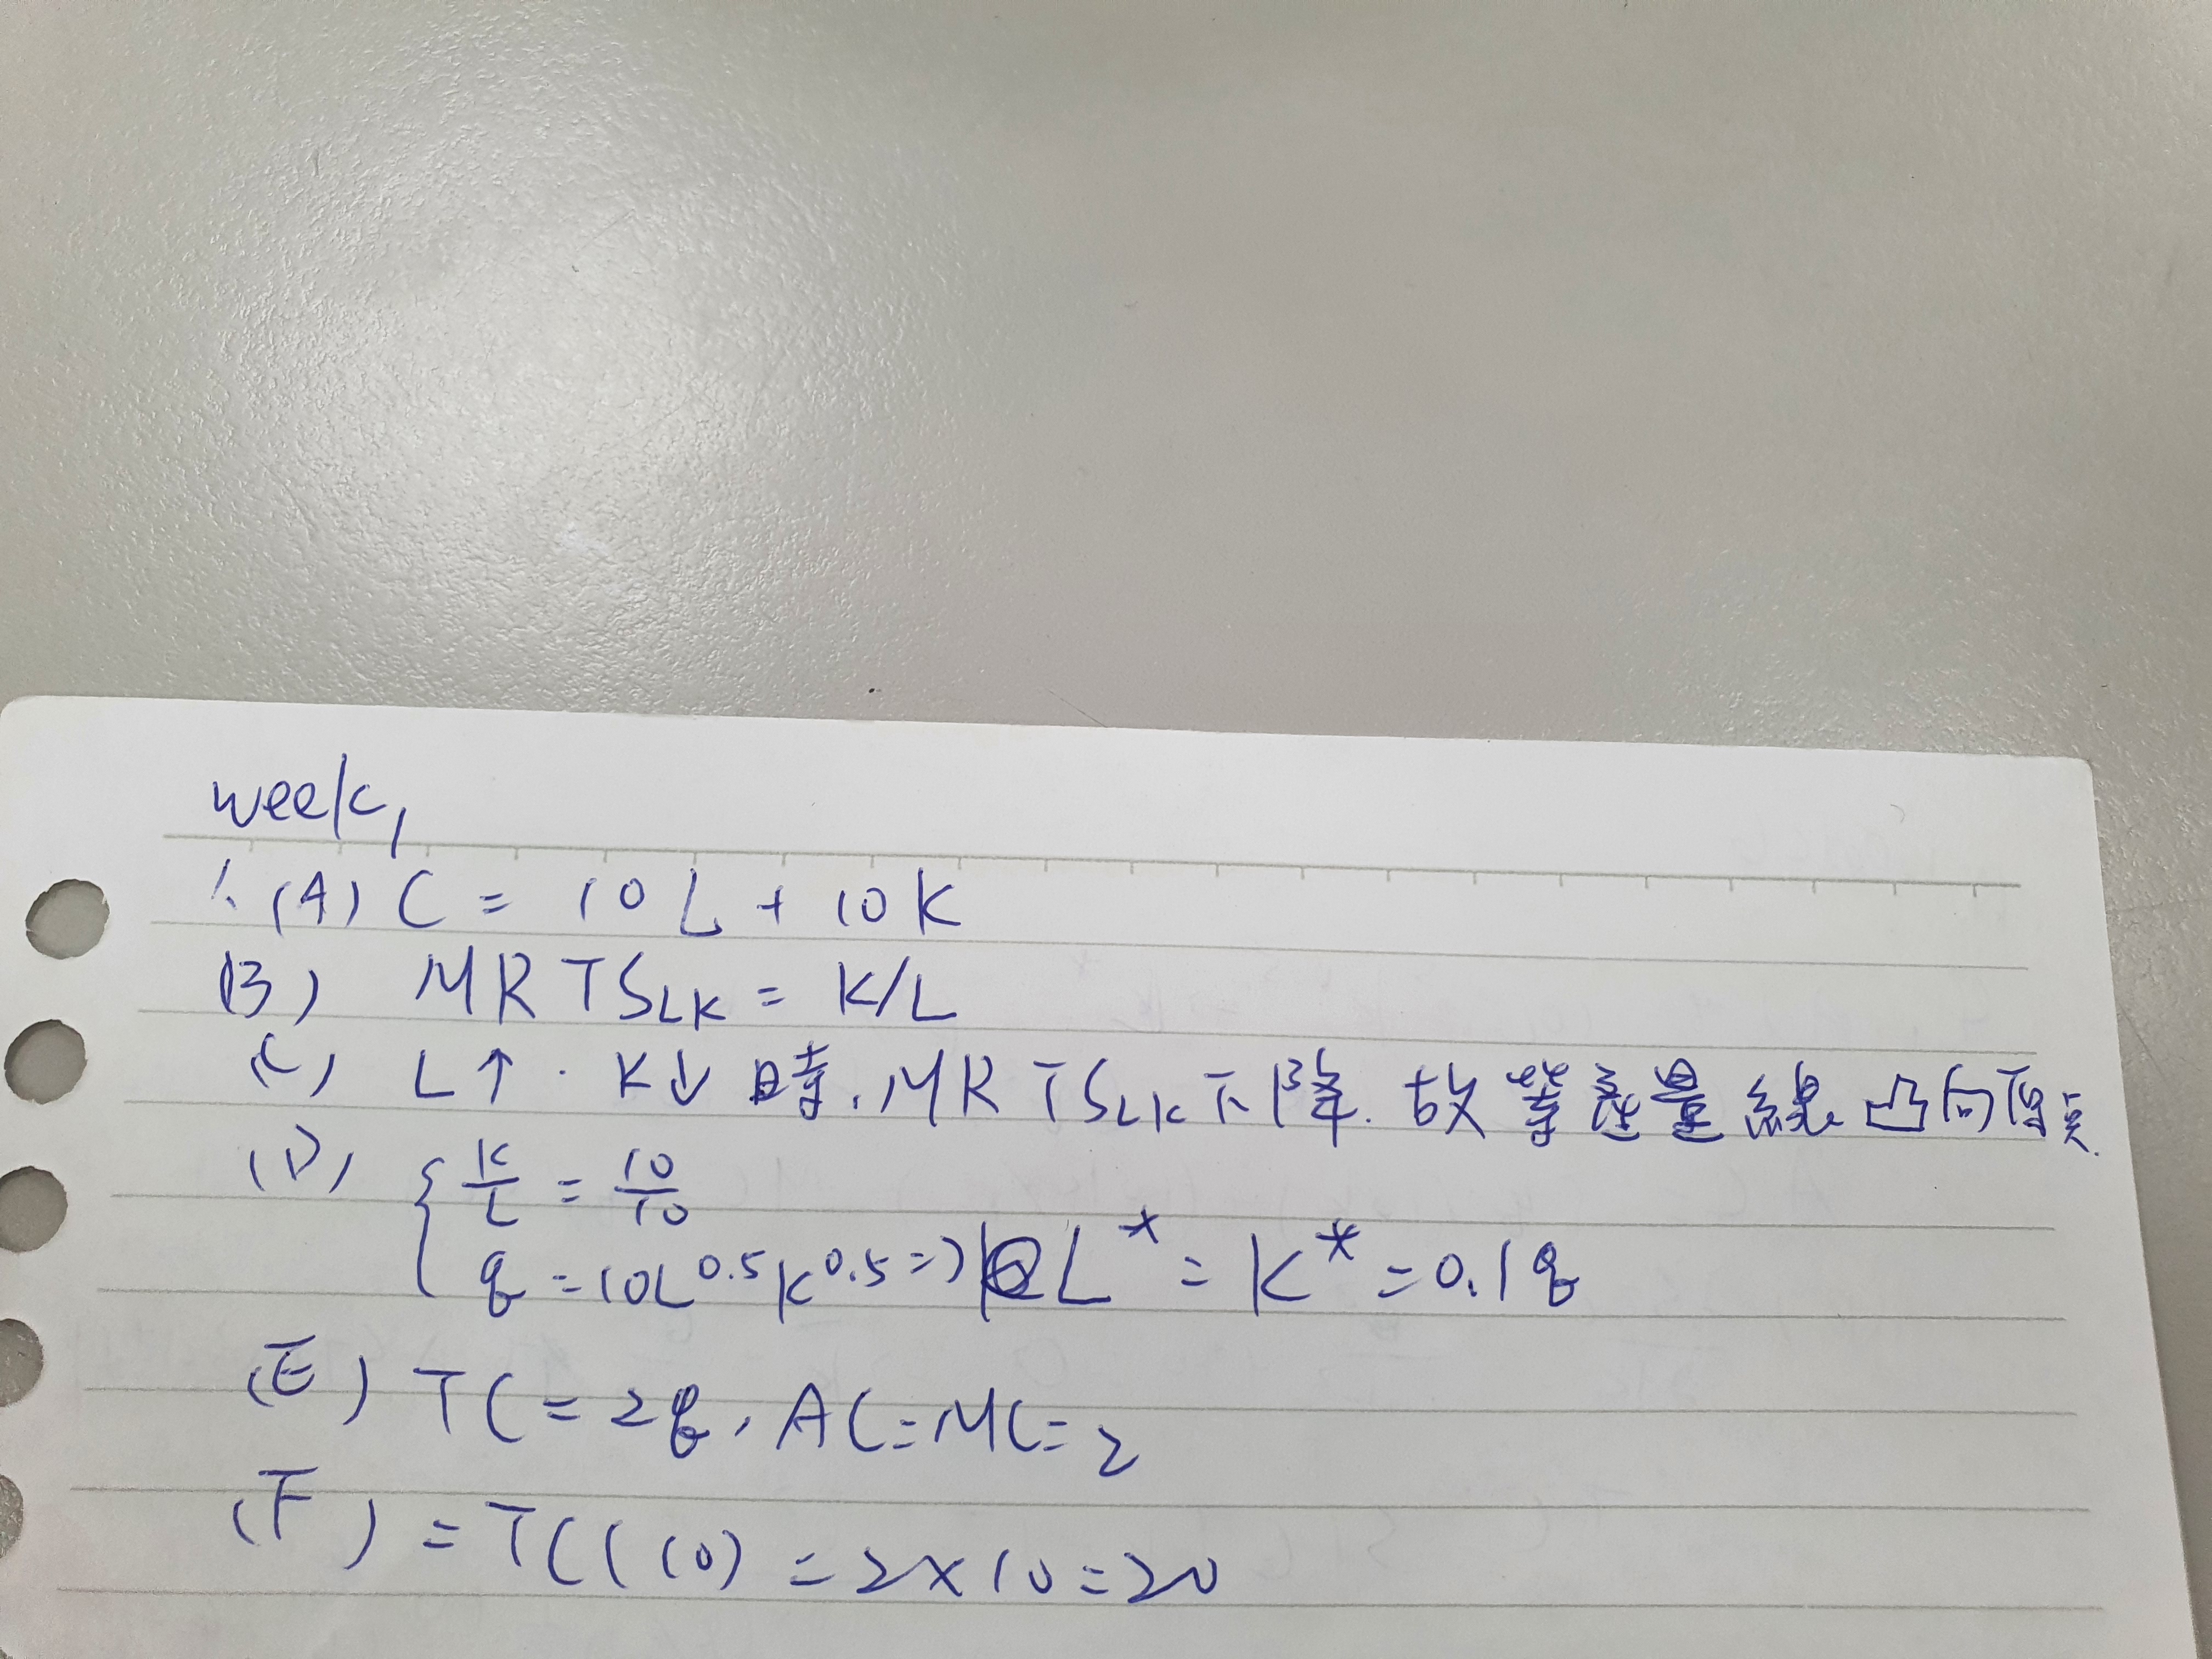 week1
1. (A) C = 10L + 10K
(B) MRTS_LK = K/L
(C) L↑. K↓時, MRTS_LK下降. 故等產量線凸向原點.
(D) { K/L = 10/10
q = 10L^0.5 K^0.5 => L* = K* = 0.1q
(E) TC = 2q, AC = MC = 2
(F) = TC(10) = 2×10 = 20